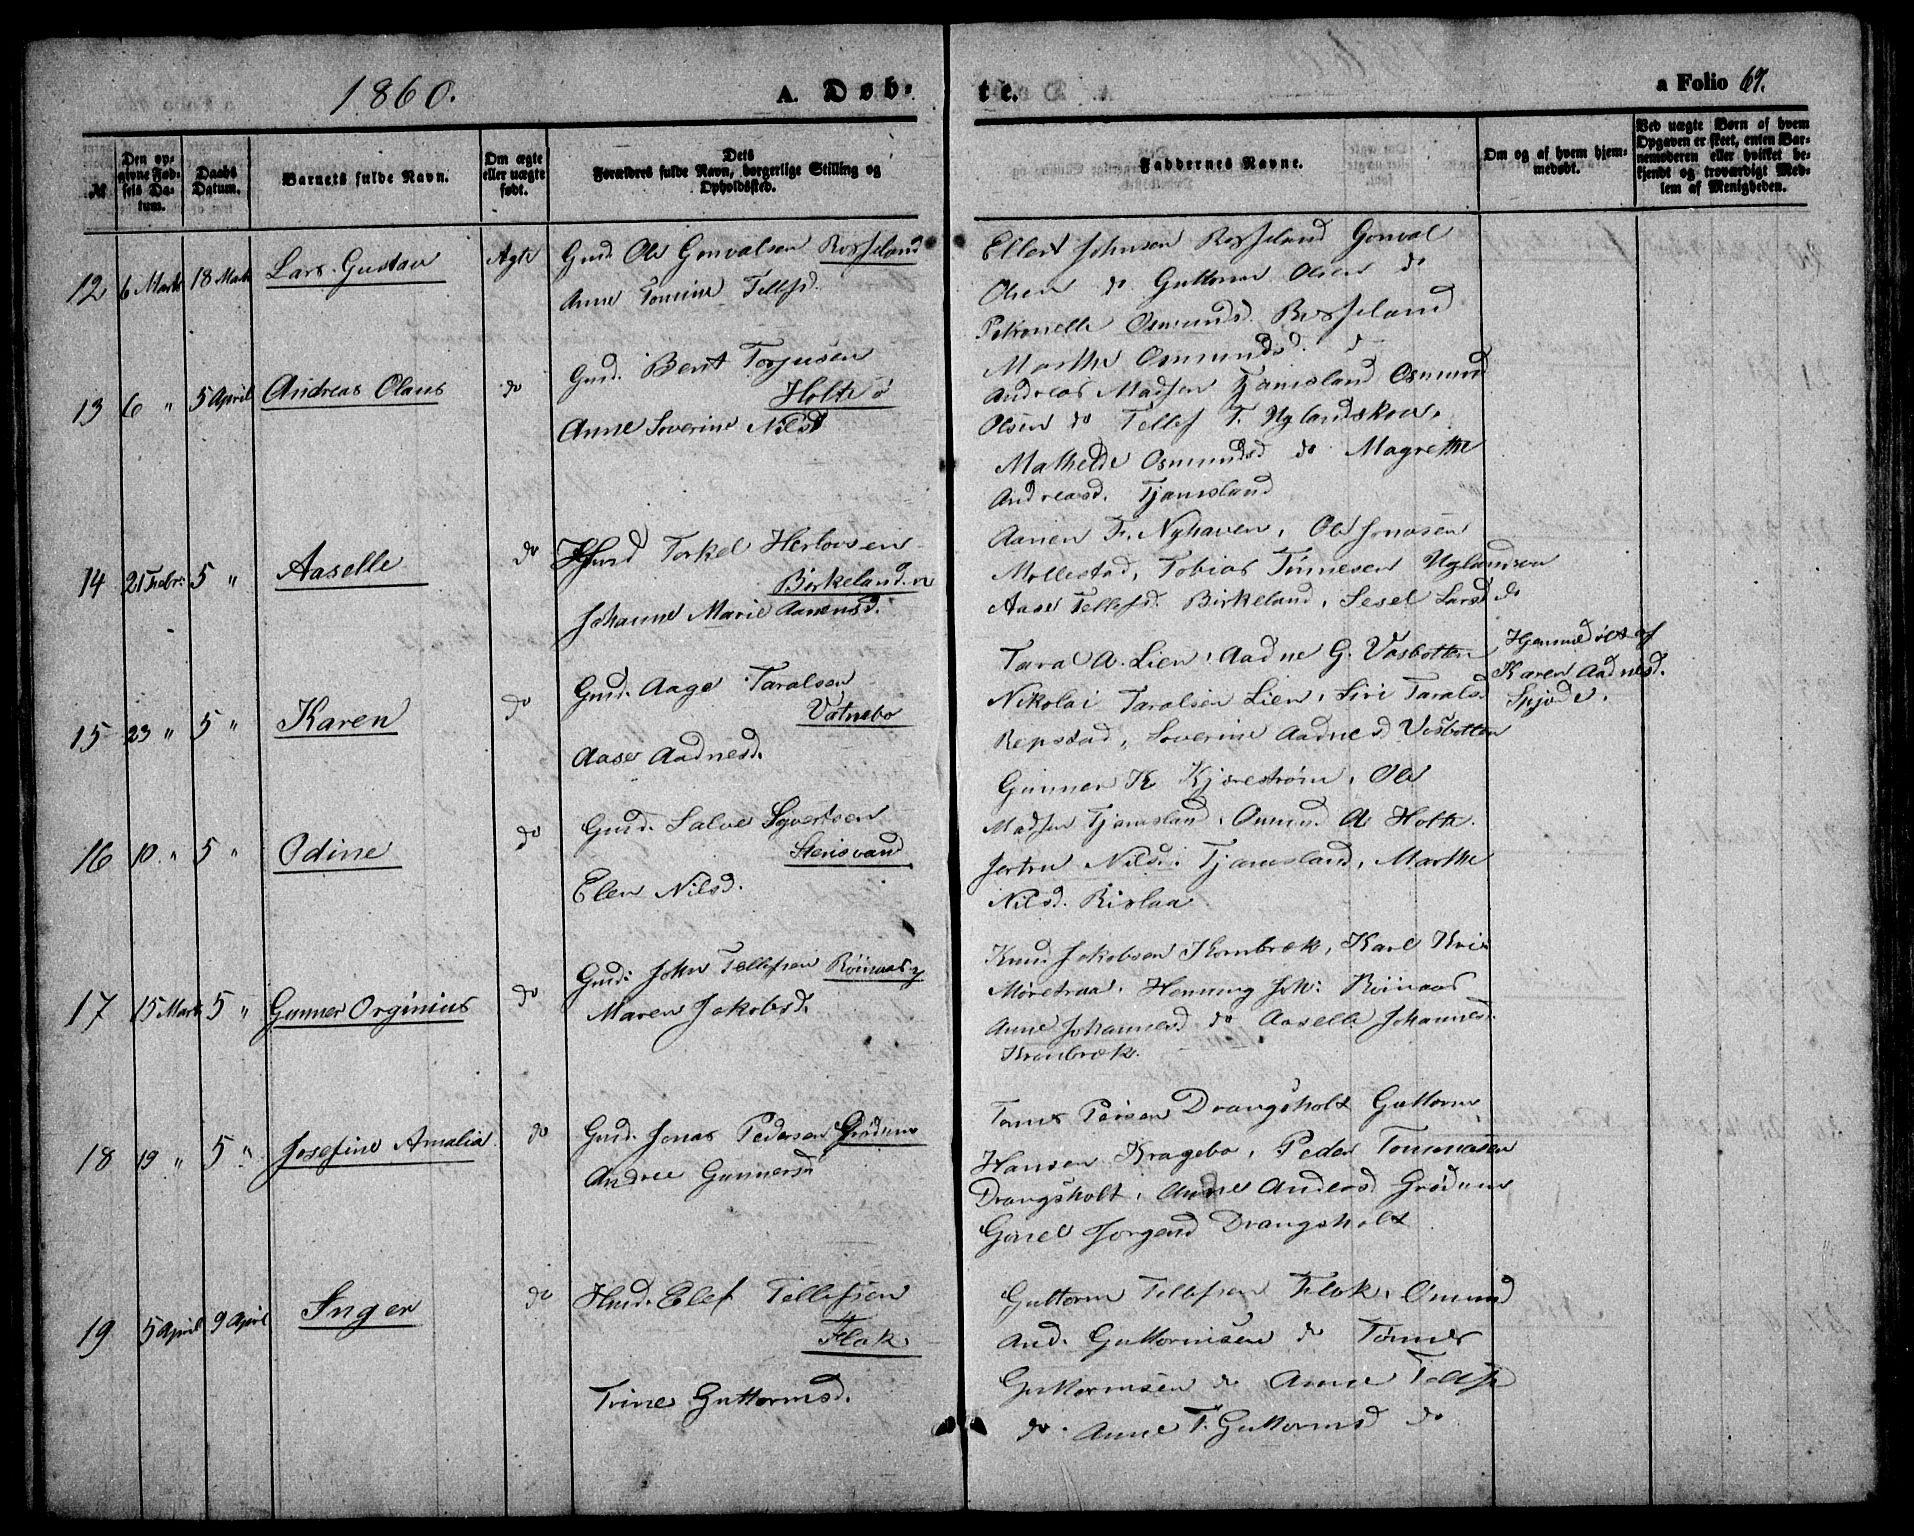 1860.
A. Døb-
te.
a Folio 67.
№
Den opgivne Fødsels Datum.
Daabs Datum.
Barnets fulde Navn.
Om ægte eller uægte født.
Dets Forældres fulde Navn, borgerlige Stilling og Opholdssted.
Faddernes Navne.
Om og af hvem hjemmedøbt.
Ved uægte Børn af hvem Opgaven er skeet, enten Barnemoderen eller hvilket bekjendt og troværdigt Medlem af Menigheden.
12 6 Marts 18 Marts Lars Gustav Ægte Gmd. Ole Gonvalsen Rosseland
Anne Tomine Tellefsd.
Ellert Johnsen Rosseland Gonval
Olsen do Guttorm Olsen do
Petronelle Osmundsd. Rosseland
Marthe Osmundsd. do
13 6 " 5 April Andreas Olaus do Gmd. Berit Torjusen
Holte ø
Anne Severine Nilsd
Andreas Madsen Tjamsland Osmund
Olsen do Tellef T. Uglandskou.
Mathelde Osmundsd do Magrethe
Andreasd. Tjamsland
14 21 Febr. 5 " Aaselle do Hmd Torkel Herlovsen
Birkeland
Johanne Marie Aanensd.
Aanen F. Nyhaven, Ole Jonasen
Mollestad, Tobias Tønnesen Uglandsou
Aase Tellefsd. Birkeland, Sesel Larsd do
15 23 " 5 " Karen do Gmd. Aage Taralsen
Vatnebo
Aase Aadnesd.
Taral A. Lien, Aadne G. Vasbotten
Nikolai Taralsen Lien, Siri Taralsd
Repstad, Severine Aadnesd Vasbotten
Hjemmedøbt af
Karen Aadnesd.
16 10 " 5 " Odine do Gmd. Salve Syvertsen
Stenisvand
Elen Nilsd.
Gunner K Kjærestrøm, Ole
Madsen Tjamsland, Osmund A Holte.
Nilsd. Tjamsland, Marthe
Nilsd. Rislaa
17 15 Marts 5 " Gunner Orginius do Gmd. John Tellefsen Røinaas
Maren Jakobsd.
Knud Jakobsen Kornbrek, Karl
Henning Joh: Røinaas
Anne Johannesd do Aaselle Johannesd.
18 19 " 5 " Josefine Amalia do Gmd. Jonas Pedersen Grødum
Andree Gunnersd
Drangsholt Guttorm
Hansen Kragebo, Peder Tommasen
Drangsholt, Anne Andersd Grødum
Gonel Jørgensd Drangsholt
19 5 April 9 April Inger do Hmd. Elef Tellefsen
Flak
Trine Guttormsd.
Guttorm Tellefsen Flak, Osmund
And. Guttormsen do Tønnes
Guttormsen do Anne Tellefsd
do. Anne T. Guttormsd do